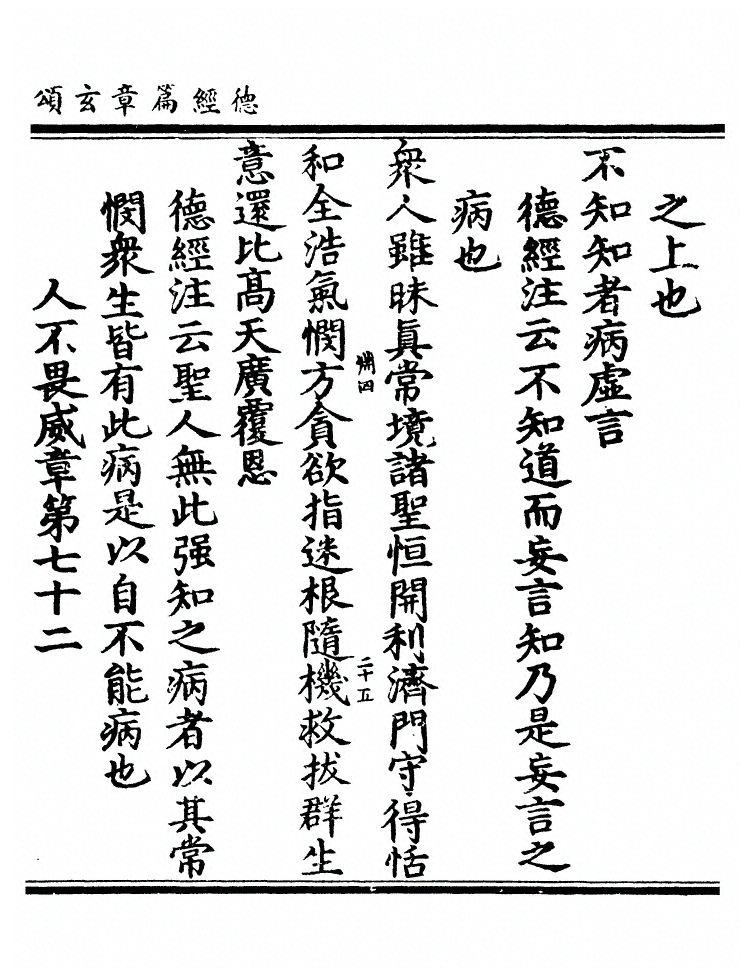 德經篇章玄頌
之上也
不知知者病虛言
德經注云不知道而妄言知乃是妄言之
病也
衆人雖昧眞常境諸聖恒開利濟門守得恬
和全浩氣憫方貪欲指迷根隨機救拔群生
意還比高天廣覆恩
德經注云聖人無此强知之病者以其常
憫衆生皆有此病是以自不能病也
人不畏威章第七十二
二十五